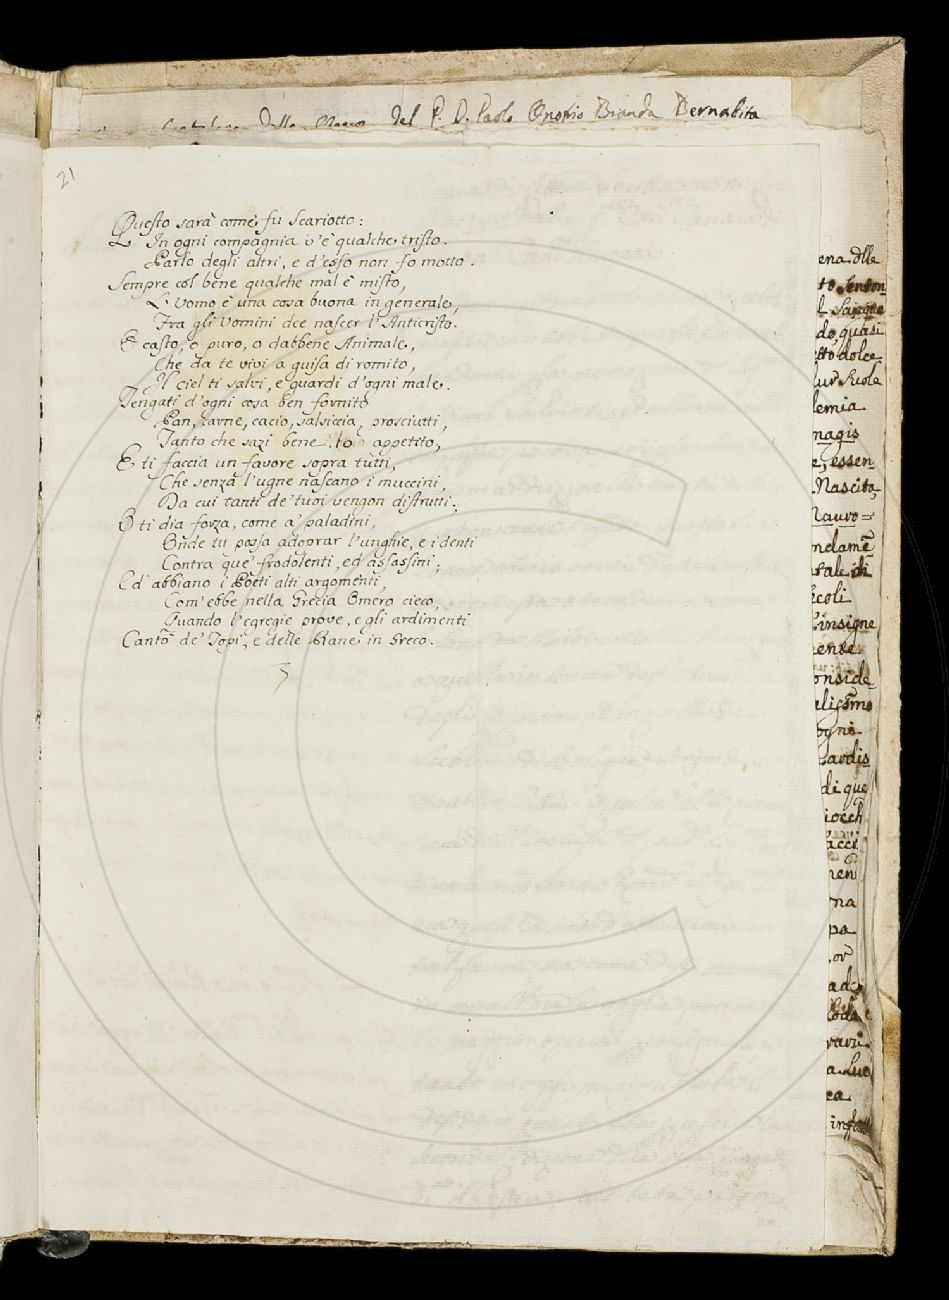 del P. D. Paolo Onofrio Branda Bernabita
21
Questo sarà come fu Scariotto:
In ogni compagnia v'è qualche tristo.
Parlo degli altri, e d'esso non fo motto.
Sempre col bene qualche mal è misto,
L'Uomo è una cosa buona in generale,
Fra gli Uomini dee nascer l'Anticristo.
O casto, o puro, o dabbene Animale,
Che da te vivi a guisa di romito,
Il ciel ti salvi, e guardi d'ogni male.
Tengati d'ogni cosa ben fornito
Pan, carne, cacio, salsiccia, prosciutti,
Tanto che sazi bene appetito,
E ti faccia un favore sopra tutti,
Che senza l'ugne nascano i muccini,
Da cui tanti de' tuoi vengon distrutti;
O ti dia forza, come a' paladini,
Onde tu possa adoprar l'unghie, e i denti
Contra que' frodolenti, ed assassini;
Ed abbiano i Poeti alti argomenti,
Com' ebbe nella Grecia Omero cieco,
Quando l'egregie prove, e gli ardimenti
Cantò de' Topi, e delle Rane in Greco.
ena dlle
l Sangue
do, quasi
etto dolce
lemia
magis
e, essen
Nascita,
Nauro=
ndamē
tale di
ecoli
insigne
ente
onside
ogni
ardis
di que
iocch
acci
men
rna
pa
or
rari
a Luo
ea